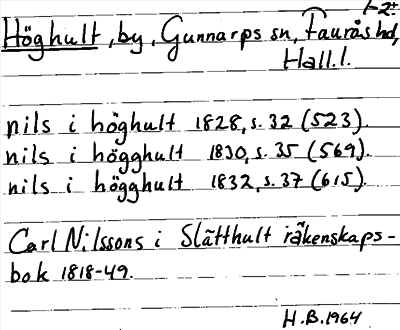 1-2*
Höghult, by, Gunnarps sn, Faurås hd,
Hall.l.
nils i höghult 1828, s. 32 (523).
nils i högghult 1830, s. 35 (569).
nils i högghult 1832, s. 37 (615).
Carl Nilssons i Slätthult räkenskaps-
bok 1818-49.
H.B. 1964